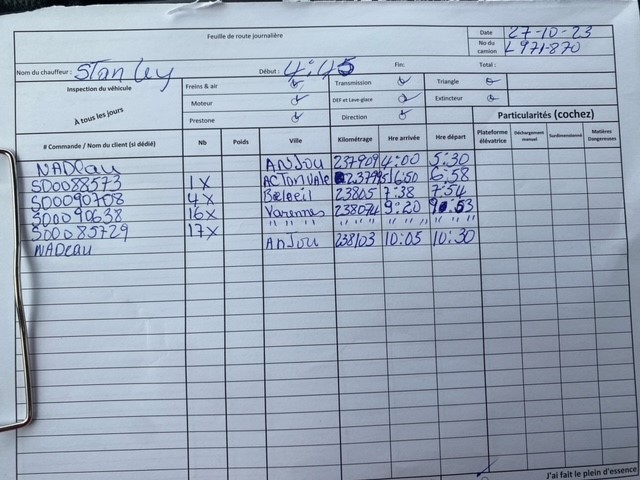 Feuille de route journalière
Date 27-10-23
No du camion L971-870
Nom du chauffeur: Stanley Début: 4:45 Fin: Total:
Inspection du véhicule
À tous les jours
Freins & air Transmission Triangle
Moteur DEF et Lave glace Extincteur
Prestone Direction
Particularités (cochez)
# Commande / Nom du client (si dédié) Nb Poids Ville Kilométrage Hre arrivée Hre départ Plateforme élévatrice Déchargement manuel Surdimensionné Matières Dangereuses
NADeau ANJOU 237909 4:00 5:30
SO0088573 1X ACTONVALE 6:50 6:58
SO0090708 4X Beloeil 23805 7:38 7:54
SO0090638 16X Varennes 238074 9:20 9:53
SO0085729 17X " " " " " " " " "
NADeau ANJOU 238103 10:05 10:30
J'ai fait le plein d'essence